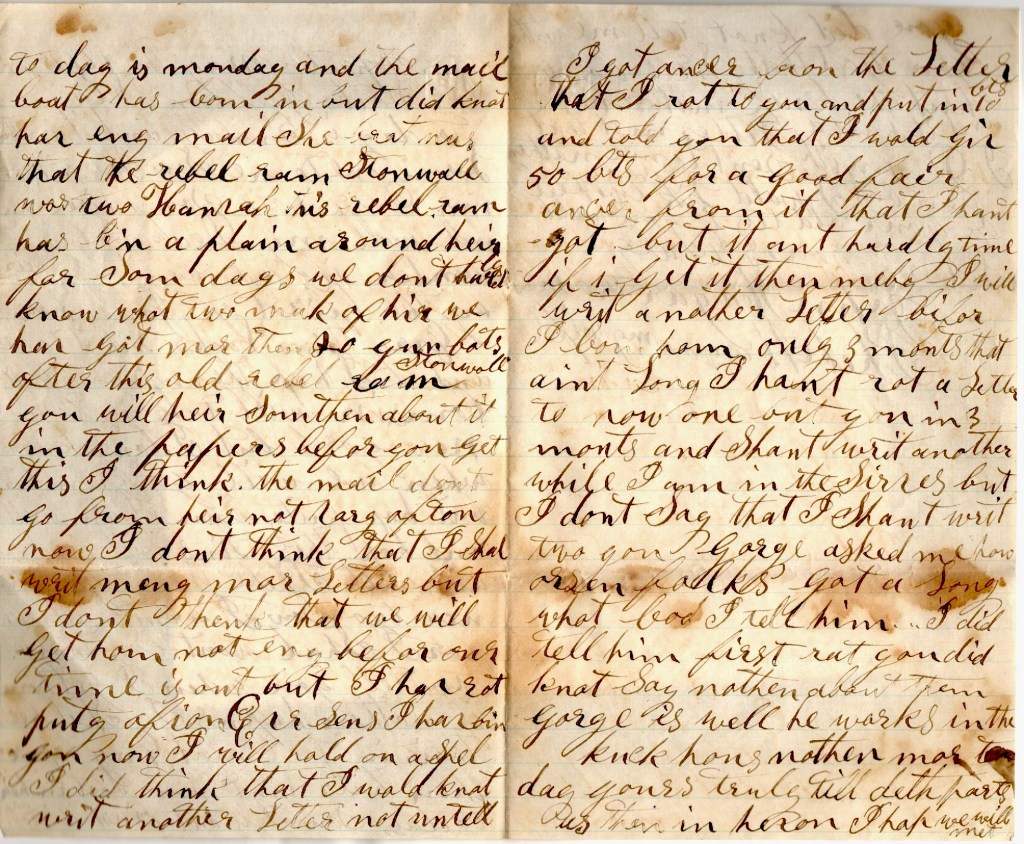 to day is monday and the mail
boat has bom in but did knot
har eny mail She brat nus
that the rebel ram Stonwall
was two Hanzah this rebel ram
has bin a plain around heir
for Som days we dont hardly
know what two mak of hir we
har got mor then 20 gun bots
after this old rebel Stonwall ram
you will heir Somthen about it
in the papers befor you get
this I think. the mail dont
go from heir not rary ofton
now I dont think that I Shal
writ meny mor Letters but
I dont thenk that we will
get hom not eny befor our
time is out but I har rot
puty ofton Ever Sens I har bin
gon now I will hold on a spel
I did think that I wold knot
writ another Letter not untell
I got ancer from the Letter
that I rot to you and put in 10 cts
and told you that I wold gir
50 cts for a good fair
ancer from it that I hant
got but it ant hardly time
if i get it then meby I will
writ another Letter bifor
I bom hom only 3 monts that
aint Long I hant rot a Letter
to now one out you in 3
monts and Shant writ another
while I am in the Sirres but
I dont Say that I Shant writ
two you Gorge asked me how
orsen folks got a Long
what boo I tell him .. I did
tell him first rat you did
knot Say nothen about them
Gorge is well he works in the
kuck hous nothen mor to
day yours truly till deth parts
us then in heron I hap we will met